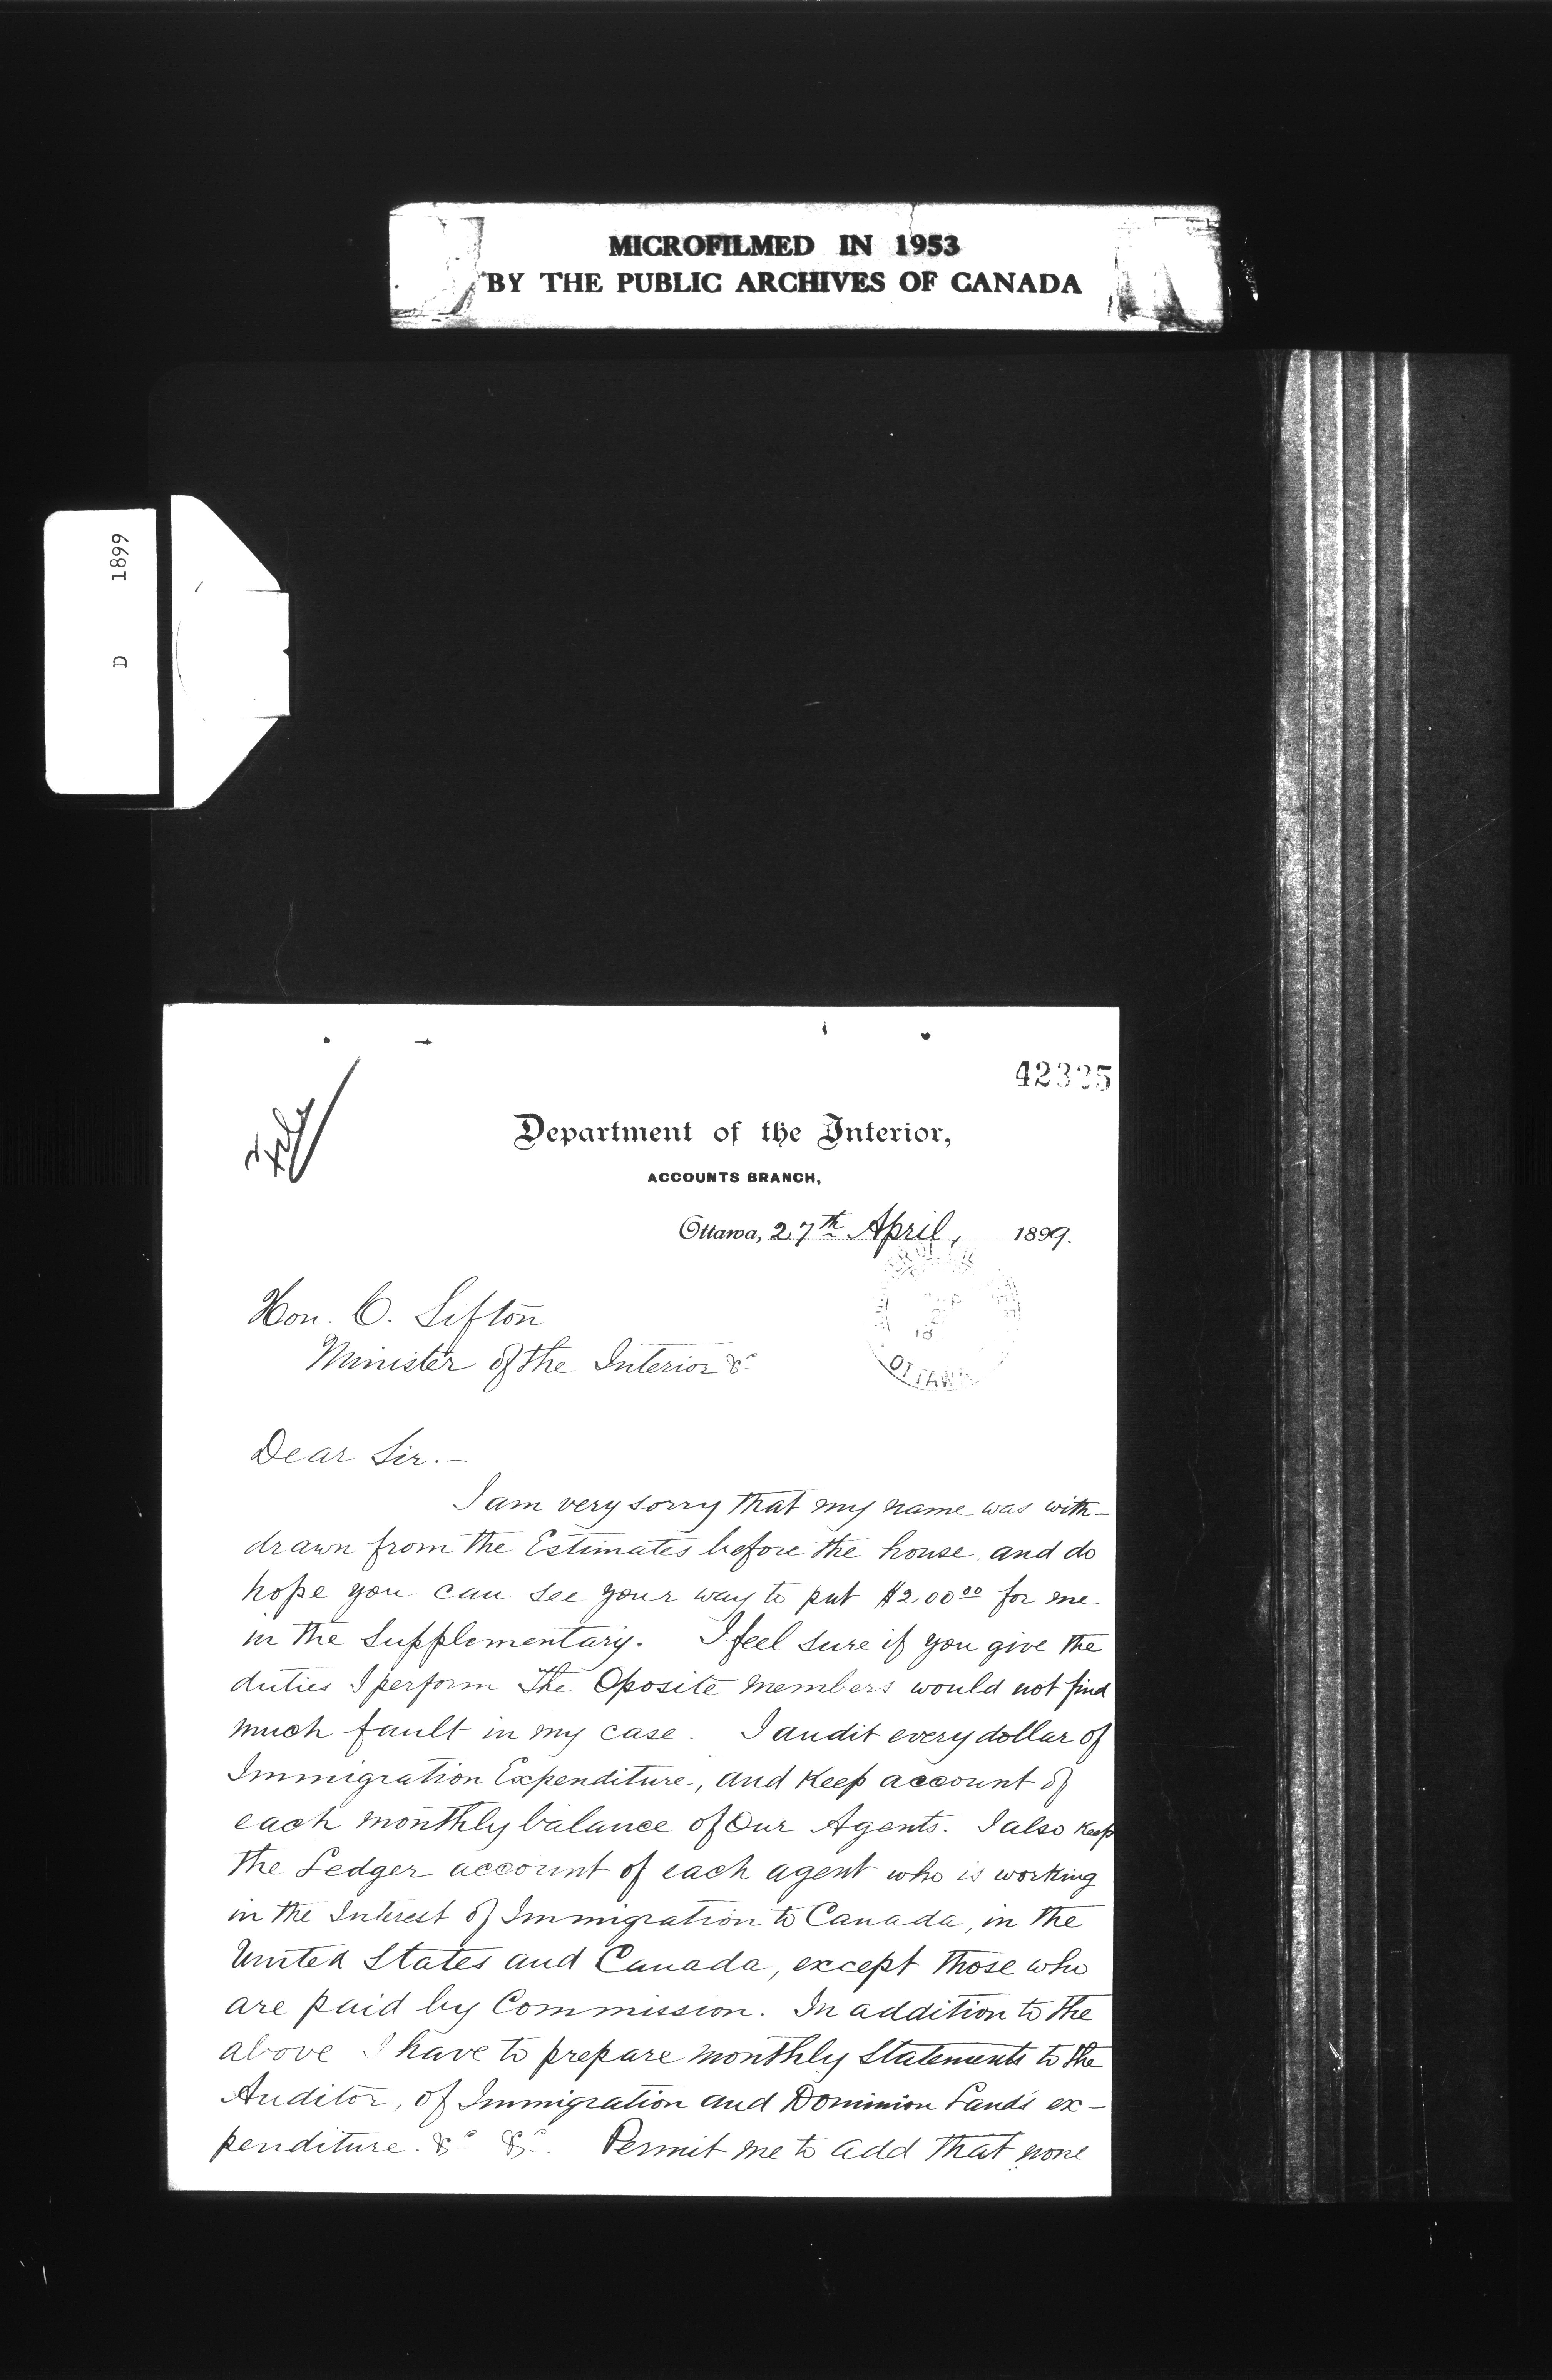 MICROFILMED IN 1953
BY THE PUBLIC ARCHIVES OF CANADA
D 1899
42325
Department of the Interior,
ACCOUNTS BRANCH,
Ottawa, 27th April, 1899.
Hon. C. Sifton
Minister of the Interior &c
Dear Sir.—
I am very sorry that my name was with-
drawn from the Estimates before the house and do
hope you can see your way to put $200 00 for me
in the Supplementary. I feel sure if you give the
duties I perform The Oposite members would not find
much fault in my case. I audit every dollar of
Immigration Expenditure, and Keep account of
each monthly balance of Our Agents. I also Keep
the Ledger account of each agent who is working
in the Interest of Immigration to Canada, in the
United States and Canada, except those who
are paid by Commission. In addition to the
above I have to prepare monthly Statements to the
Auditor, of Immigration and Dominion Lands ex-
penditure. &c &c. Permit me to add that none